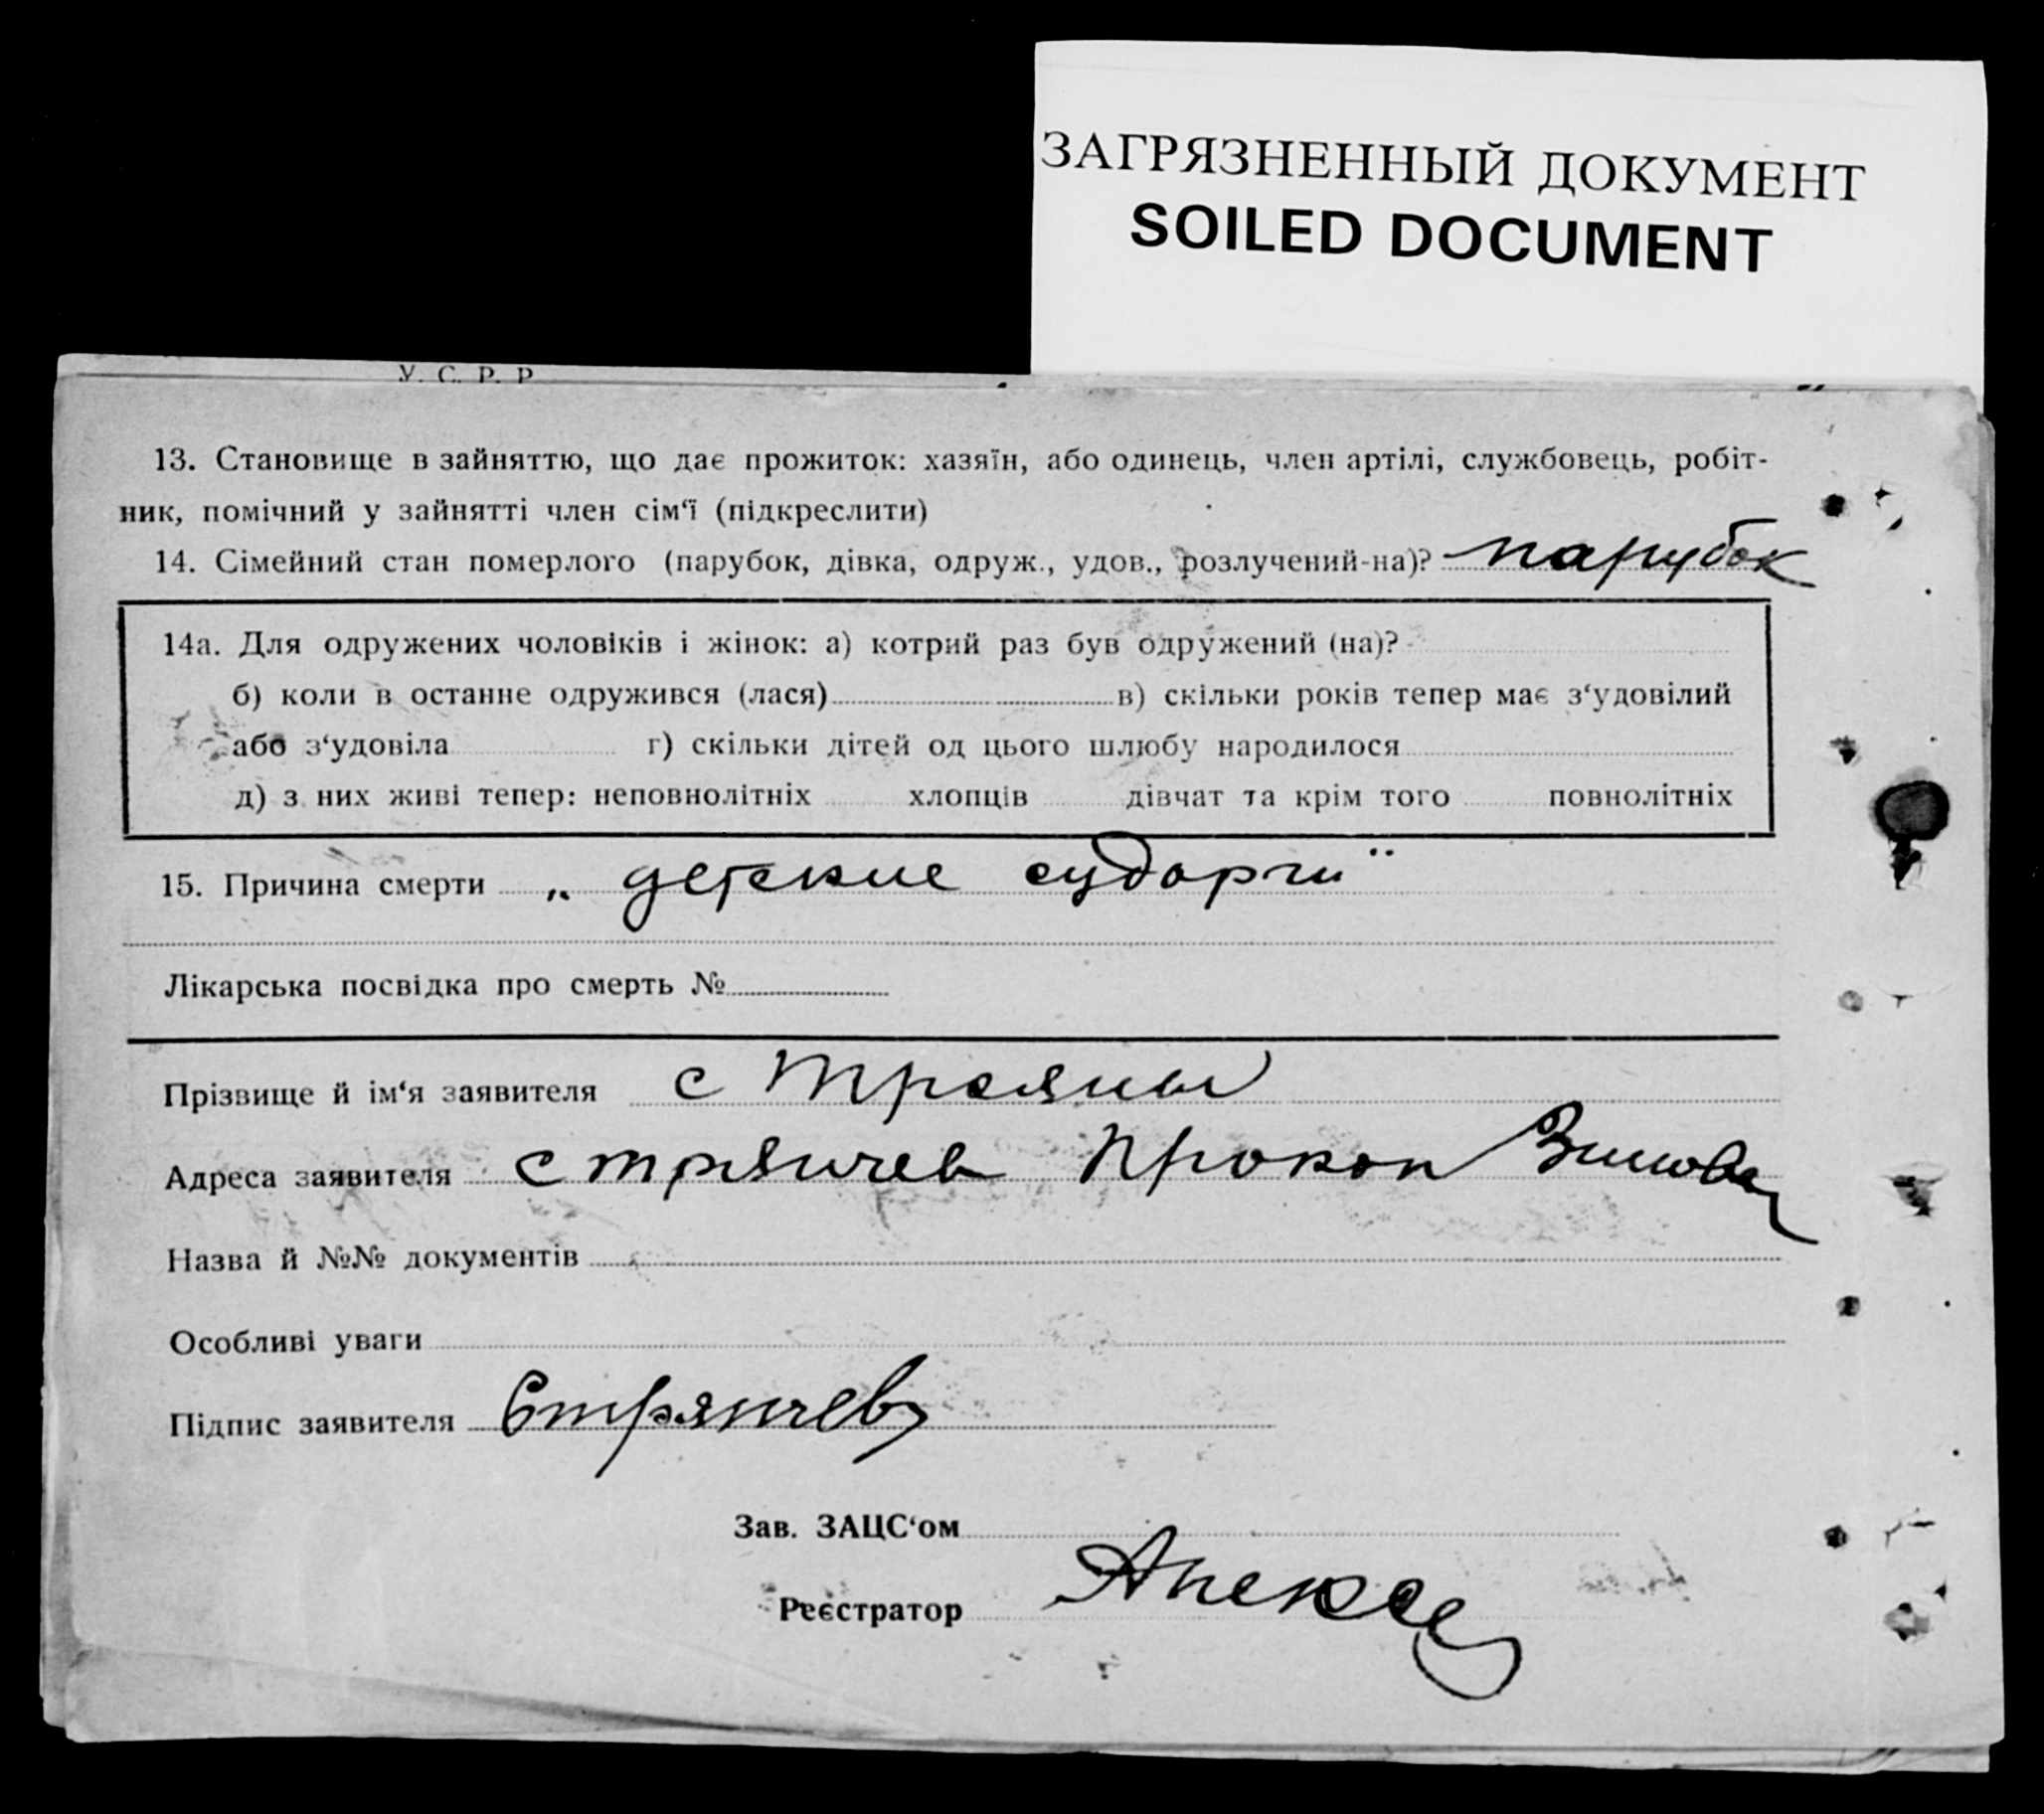 ЗАГРЯЗНЕННЫЙ ДОКУМЕНТ
SOILED DOCUMENT
У. С. Р. Р
13. Становище в зайняттю, що дає прожиток: хазяїн, або одинець, член артілі, службовець, робіт-
ник, помічний у зайнятті член сім‘ї (підкреслити)
14. Сімейний стан померлого (парубок, дівка, одруж., удов., розлучений-на)? парубок
14а. Для одружених чоловіків і жінок: а) котрий раз був одружений (на)?
б) коли в останне одружився (лася) в) скільки років тепер має з‘удовілий
або з‘удовіла г) скільки дітей од цього шлюбу народилося
д) з них живі тепер: неповнолітніх хлопців дівчат та крім того повнолітніх
15. Причина смерти „ детские судорги "
Лікарська посвідка про смерть №
Прізвище й ім‘я заявителя с Трояны
Адреса заявителя Стрянчев Прокоп
Назва й №№ документів
Особливі уваги
Підпис заявителя Стрянчев
Зав. ЗАЦС‘ом
Реєстратор